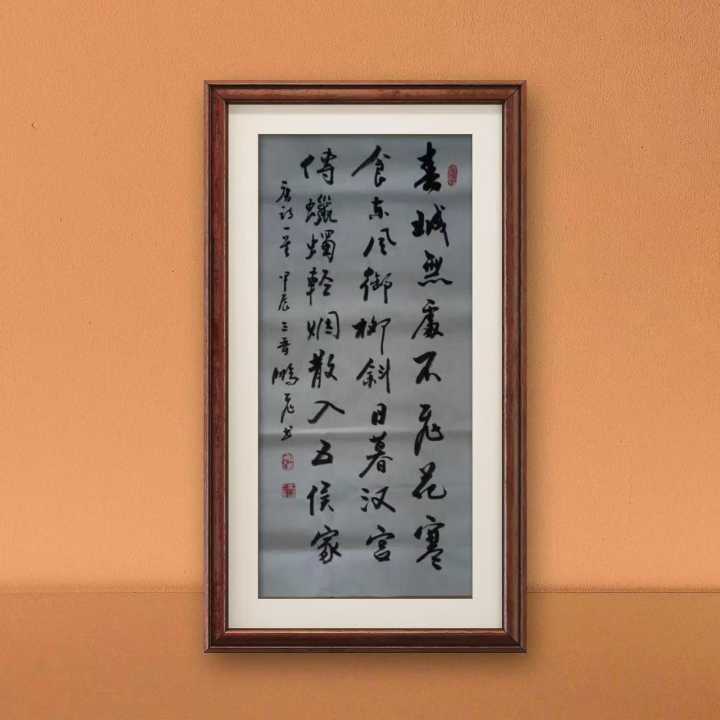 春城無處不飛花寒
食东风御柳斜日暮汉宫
傳蠟燭輕烟散入五侯家
唐诗一首 甲辰 三晋 鹏飞书